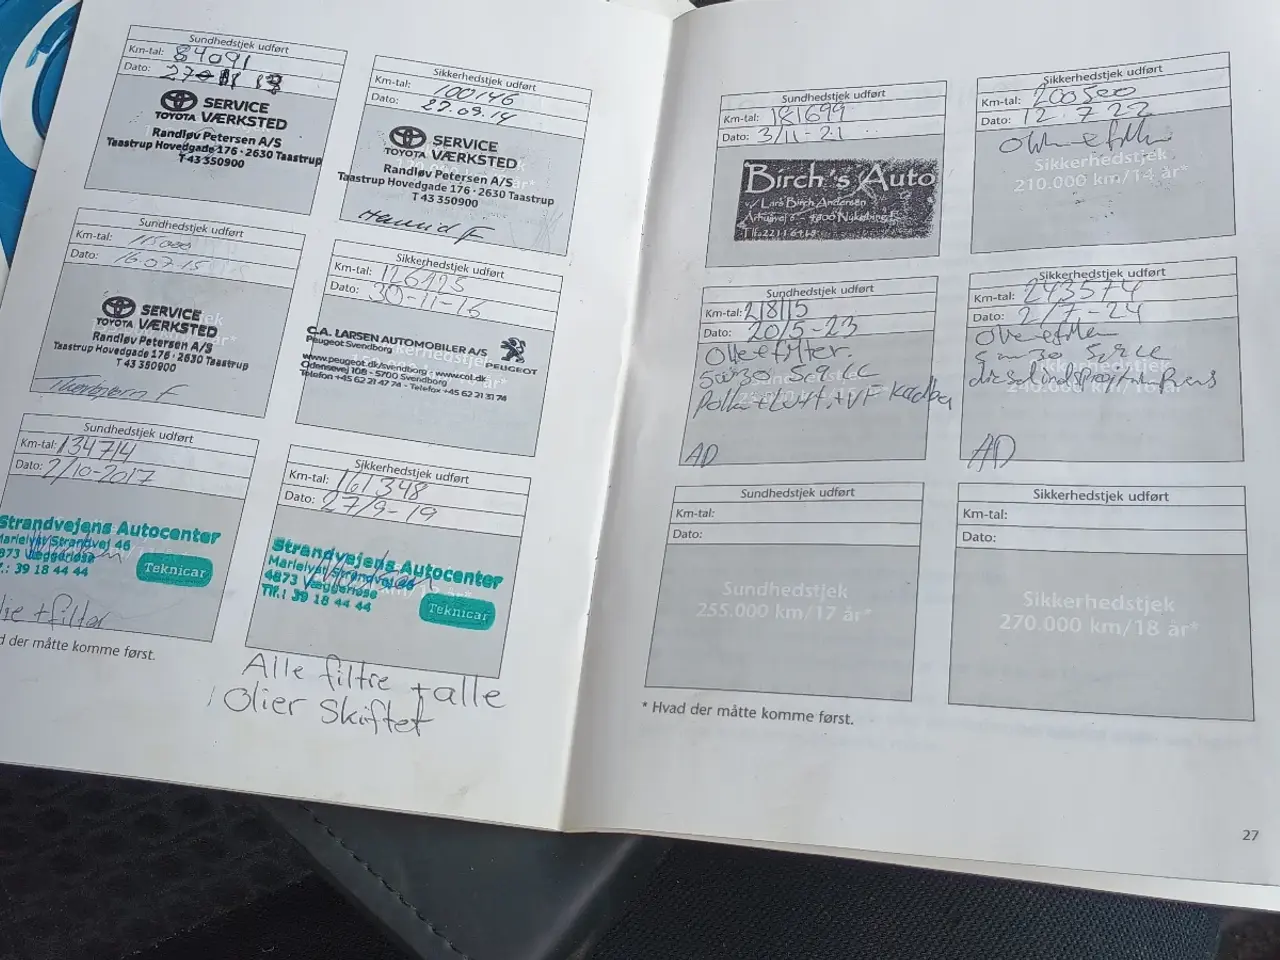 Sundhedstjek udført
Km-tal: 84091
Dato: 27
TOYOTA SERVICE VÆRKSTED
Randløv Petersen A/S
Taastrup Hovedgade 176 · 2630 Taastrup
T 43 350900
Sikkerhedstjek udført
Km-tal: 100146
Dato: 22.09.14
TOYOTA SERVICE VÆRKSTED
Randløv Petersen A/S
Taastrup Hovedgade 176 · 2630 Taastrup
T 43 350900
Sundhedstjek udført
Km-tal:
Dato: 16.07.15
TOYOTA SERVICE VÆRKSTED
Randløv Petersen A/S
Taastrup Hovedgade 176 · 2630 Taastrup
T 43 350900
Sikkerhedstjek udført
Km-tal:
Dato: 30-11-16
C.A. LARSEN AUTOMOBILER A/S
Peugeot Svendborg
PEUGEOT
www.peugeot.dk/svendborg · www.cal.dk
Odensevej 108 - 5700 Svendborg
Telefon +45 62 21 47 74 - Telefax +45 62 21 31 74
Sundhedstjek udført
Km-tal: 134714
Dato: 2/10-2017
Strandvejens Autocenter
Marielyst Strandvej 46
4873 Væggerløse
Tlf.: 39 18 44 44
Teknicar
Olie + filter
Sikkerhedstjek udført
Km-tal: 161348
Dato: 27/9-19
Strandvejens Autocenter
Marielyst Strandvej 46
4873 Væggerløse
Tlf.: 39 18 44 44
Teknicar
Alle filtre + alle
Olier Skiftet
der måtte komme først.
Sundhedstjek udført
Km-tal: 181699
Dato: 3/11-21
Birch's Auto
v/ Lars Birch Andersen
4800 Nykøbing F.
Sikkerhedstjek udført
Km-tal: 200500
Dato: 12.7.22
Sikkerhedstjek
210.000 km/14 år*
Sundhedstjek udført
Km-tal: 218115
Dato: 20/5-23
Olie+filter.
5w30 59cc
AD
Sikkerhedstjek udført
Km-tal: 243574
Dato: 2/7-24
5w30
AD
Sundhedstjek udført
Km-tal:
Dato:
Sundhedstjek
255.000 km/17 år*
Sikkerhedstjek udført
Km-tal:
Dato:
Sikkerhedstjek
270.000 km/18 år*
* Hvad der måtte komme først.
27